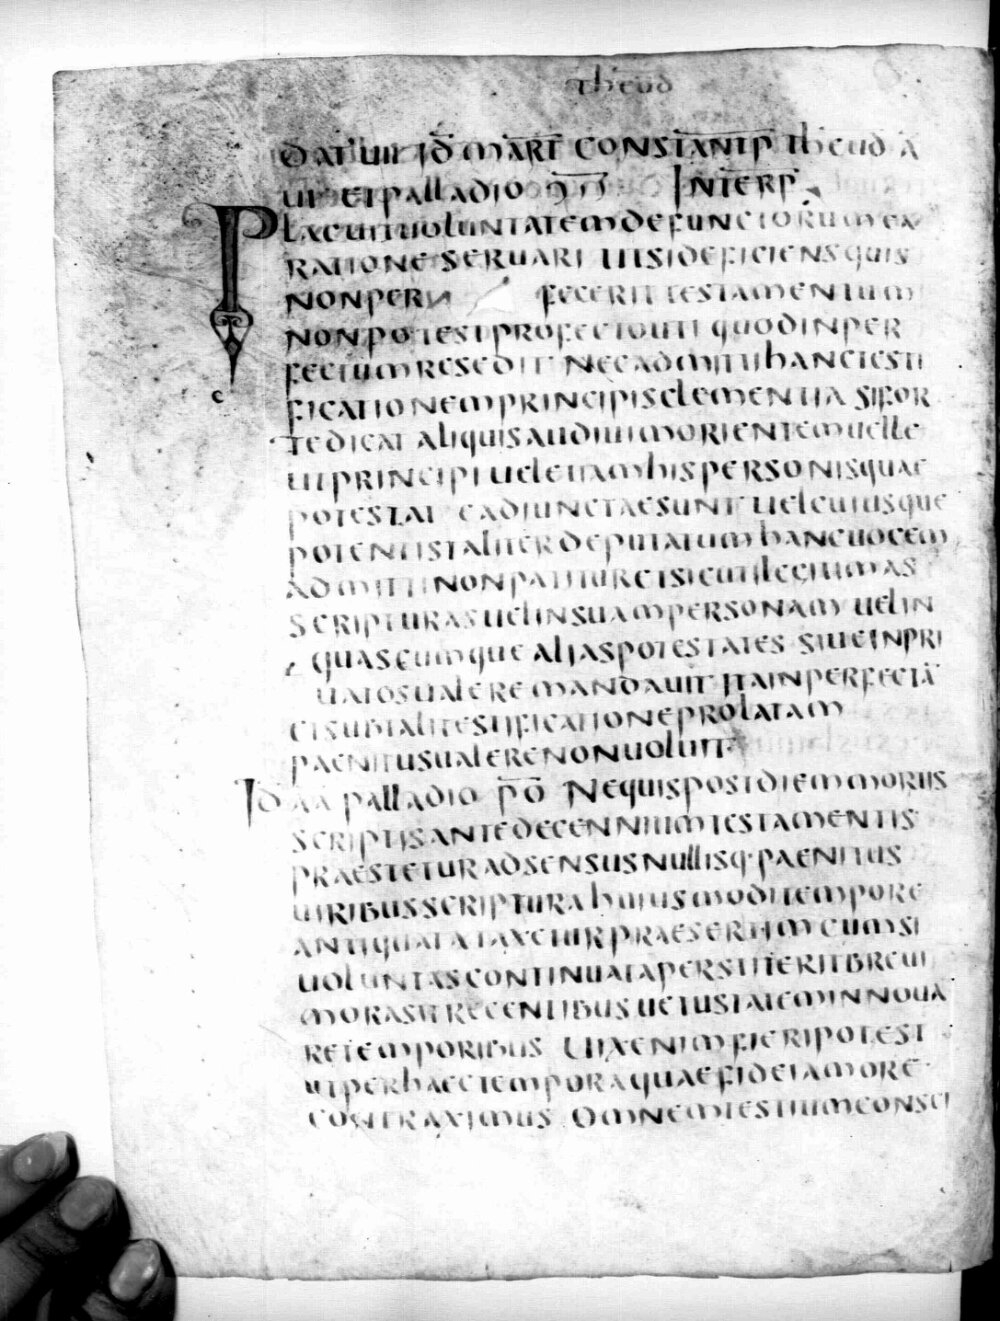 theud
DAT UIII ID MART CONSTANTP theud A
UI ET palladio INTERP
PLACUIT UOLUNTATEM DEFUNCTORUM EX
RATIONE SERUARI UT SI DEFICIENS QUIS
NON PER FECERIT TESTAMENTUM
NON POTEST PROFECTO UTI QUOD INPER
FECTUM RESEDIT NEC ADMITTI HANC TESTI
FICATIONEM PRINCIPIS CLEMENTIA SI FOR
TE DICAT ALIQUIS AUDIUI MORIENTEM UELLE
UT PRINCIPI UEL ETIAM HIS PERSONIS QUAE
POTESTAT EADIUNCTAE SUNT UEL CUIUSQUE
POTENTIS TALITER DEPUTATUM HANC UOCEM
ADMITTI NON PATITUR ET SICUTI LEGITIMAS
SCRIPTURAS UEL IN SUAM PERSONAM UEL IN
QUASCUMQUE ALIAS POTESTATES SIUE IN PRI
UATOS UALERE MANDAUIT ITA INPERFECTĀ
ET SUB TALI TESTIFICATIONE PROLATAM
PAENITUS UALERE NON UOLUIT
ID AA PALLADIO PŌ NEQUIS POST DIEM MORTIS
SCRIPTIS ANTE DECENNIUM TESTAMENTIS
PRAESTETUR ADSENSUS NULLISQ· PAENITUS
UIRIBUS SCRIPTURA HUIUSMODI TEMPORE
ANTIQUATA TAXETUR PRAESERTIM CUM SI
UOLUNTAS CONTINUATA PERSTITERIT BREUI
MORA SIT RECENTIBUS UETUSTATEM INNOUA
RE TEMPORIBUS UIX ENIM FIERI POTEST
UT PER HAEC TEMPORA QUAE FIDEI AMORE
CONTRAXIMUS OMNEM TESTIUM CONSCI